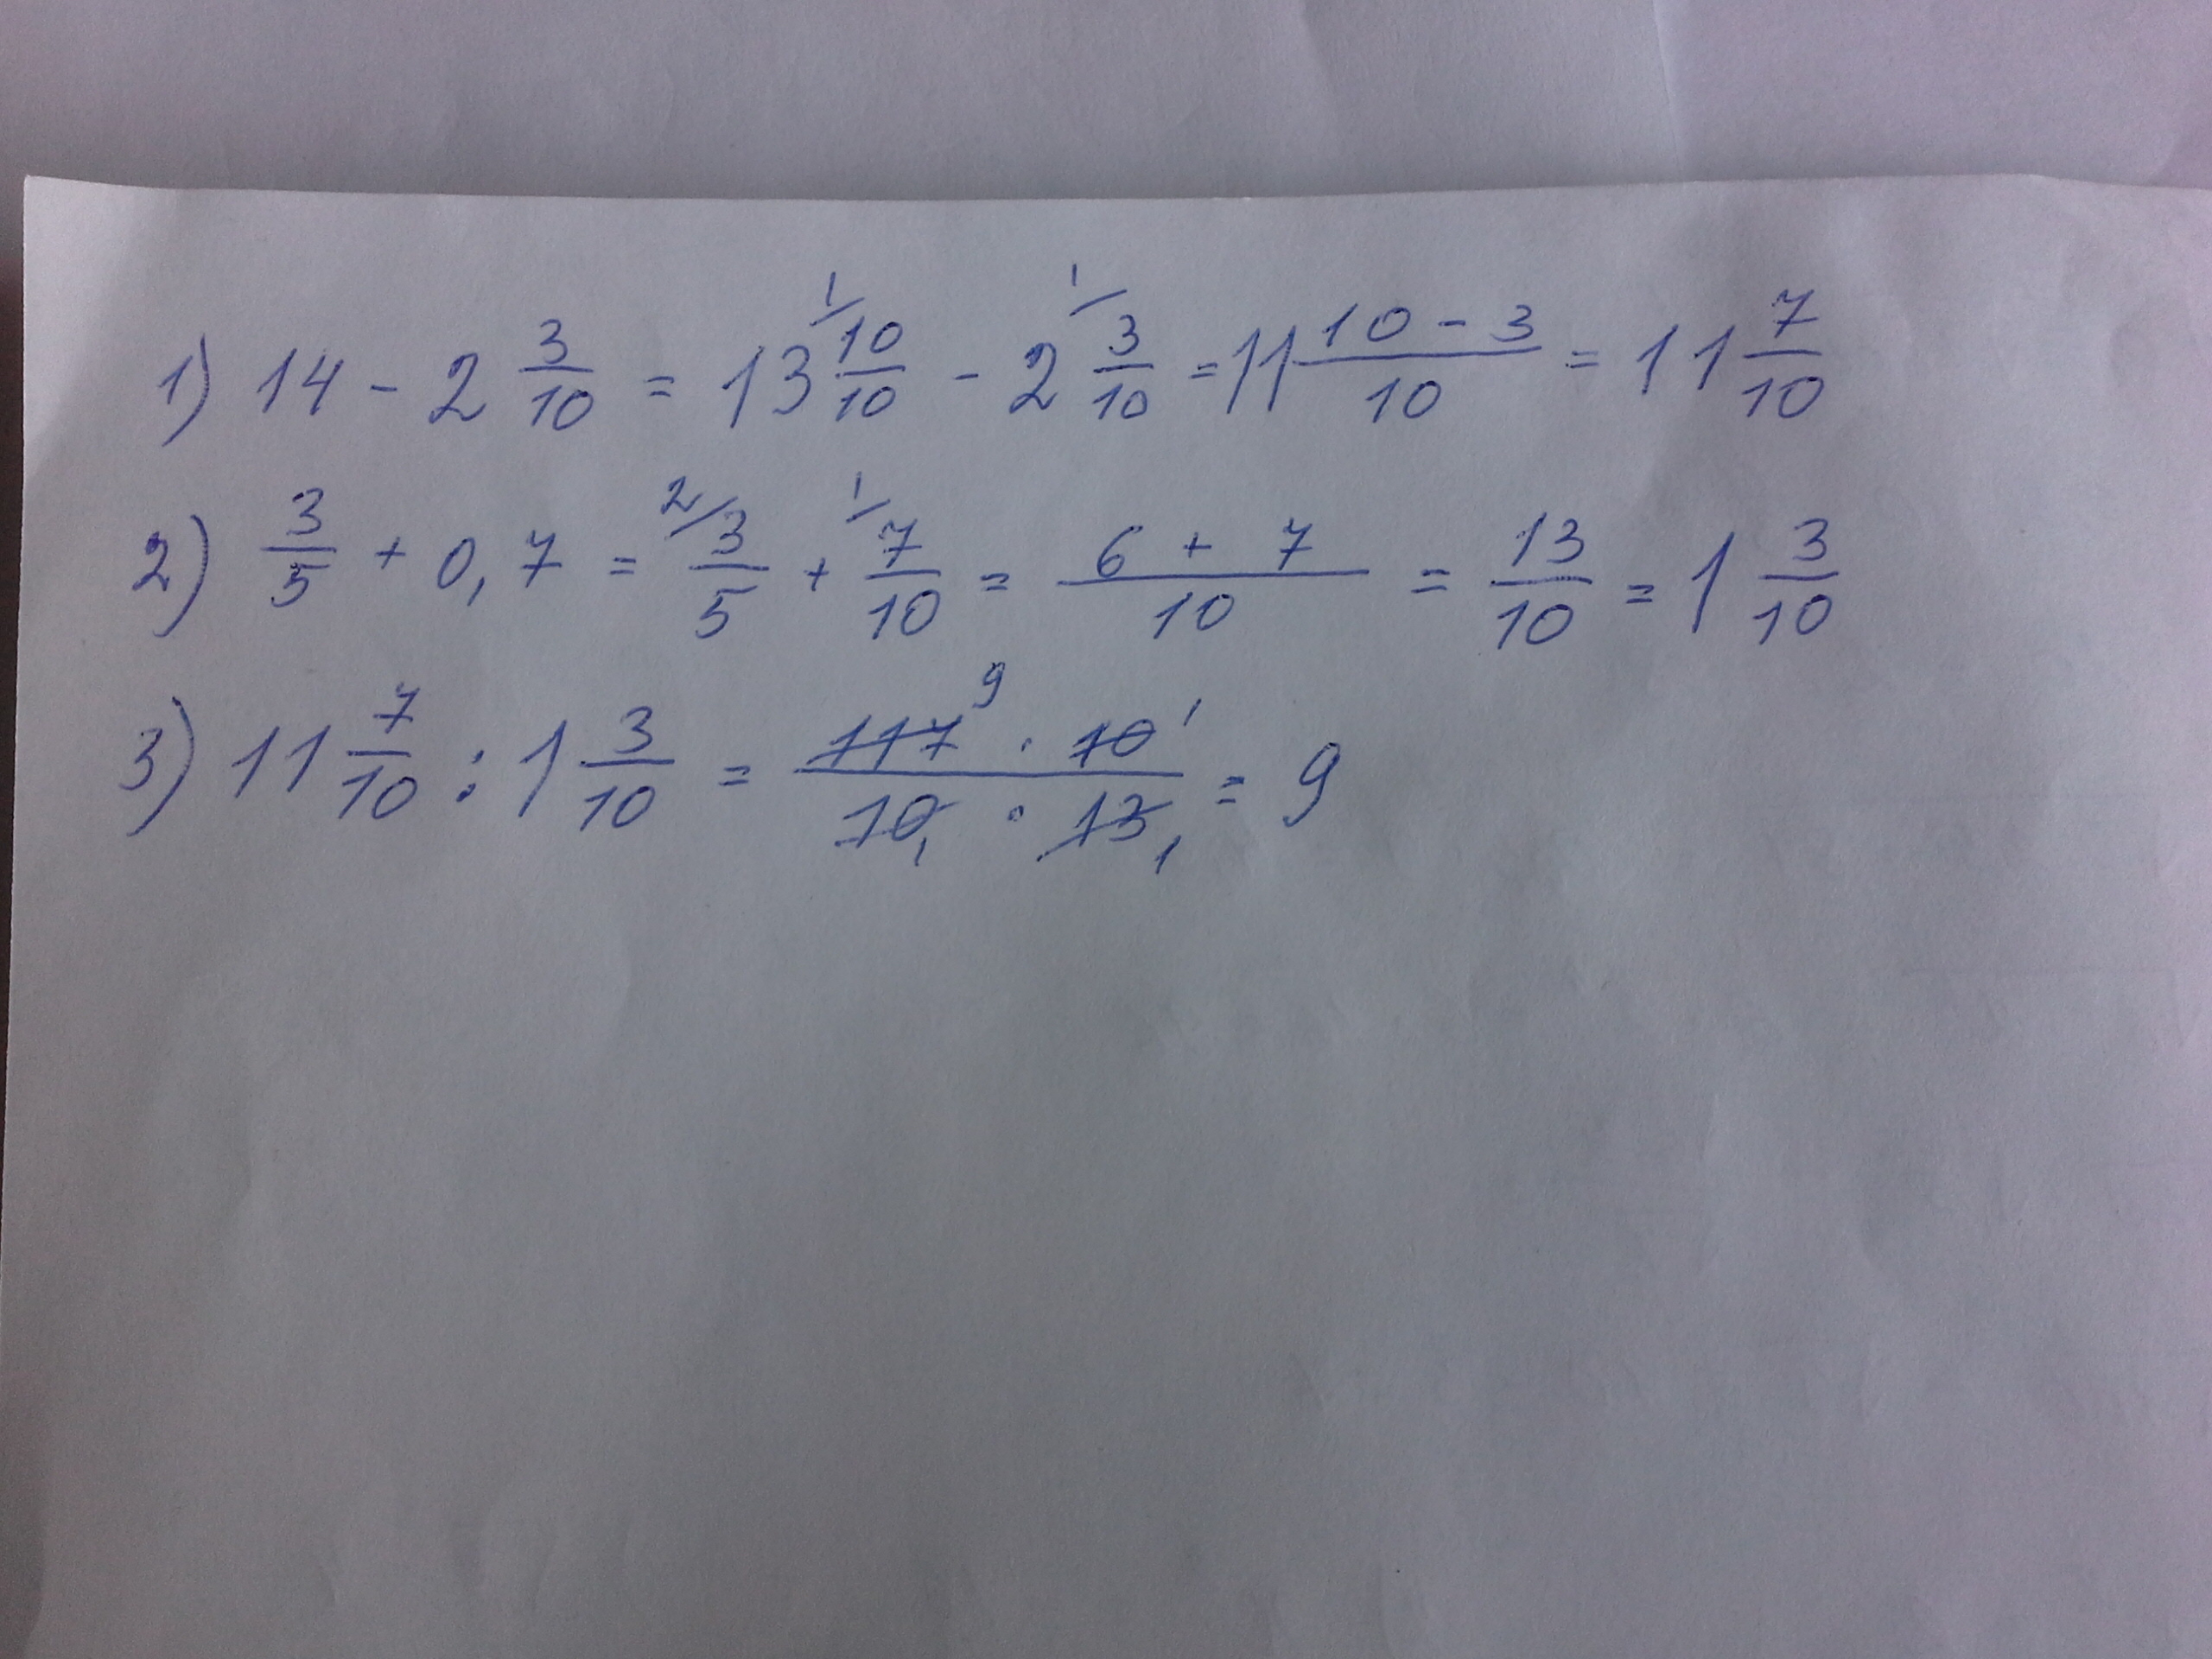 1) 14 - 2 3/10 = 13 ¹⁄ 10/10 - 2 ¹⁄ 3/10 = 11 (10 - 3)/10 = 11 7/10
2) 3/5 + 0,7 = ²⁄ 3/5 + ¹⁄ 7/10 = (6 + 7)/10 = 13/10 = 1 3/10
3) 11 7/10 : 1 3/10 = (117⁹ · 10¹)/(10₁ · 13₁) = 9